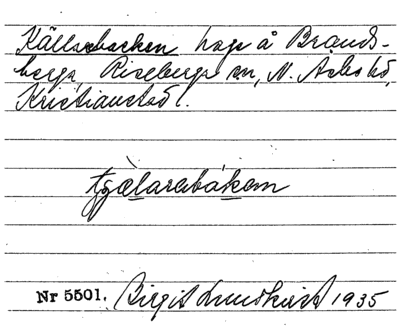 Källarebacken hage å Brands-
berga, Riseberga sn, N. Åsbo hd,
Kristianstad l.
Nr 5501. Birgit Lundkvist 1935